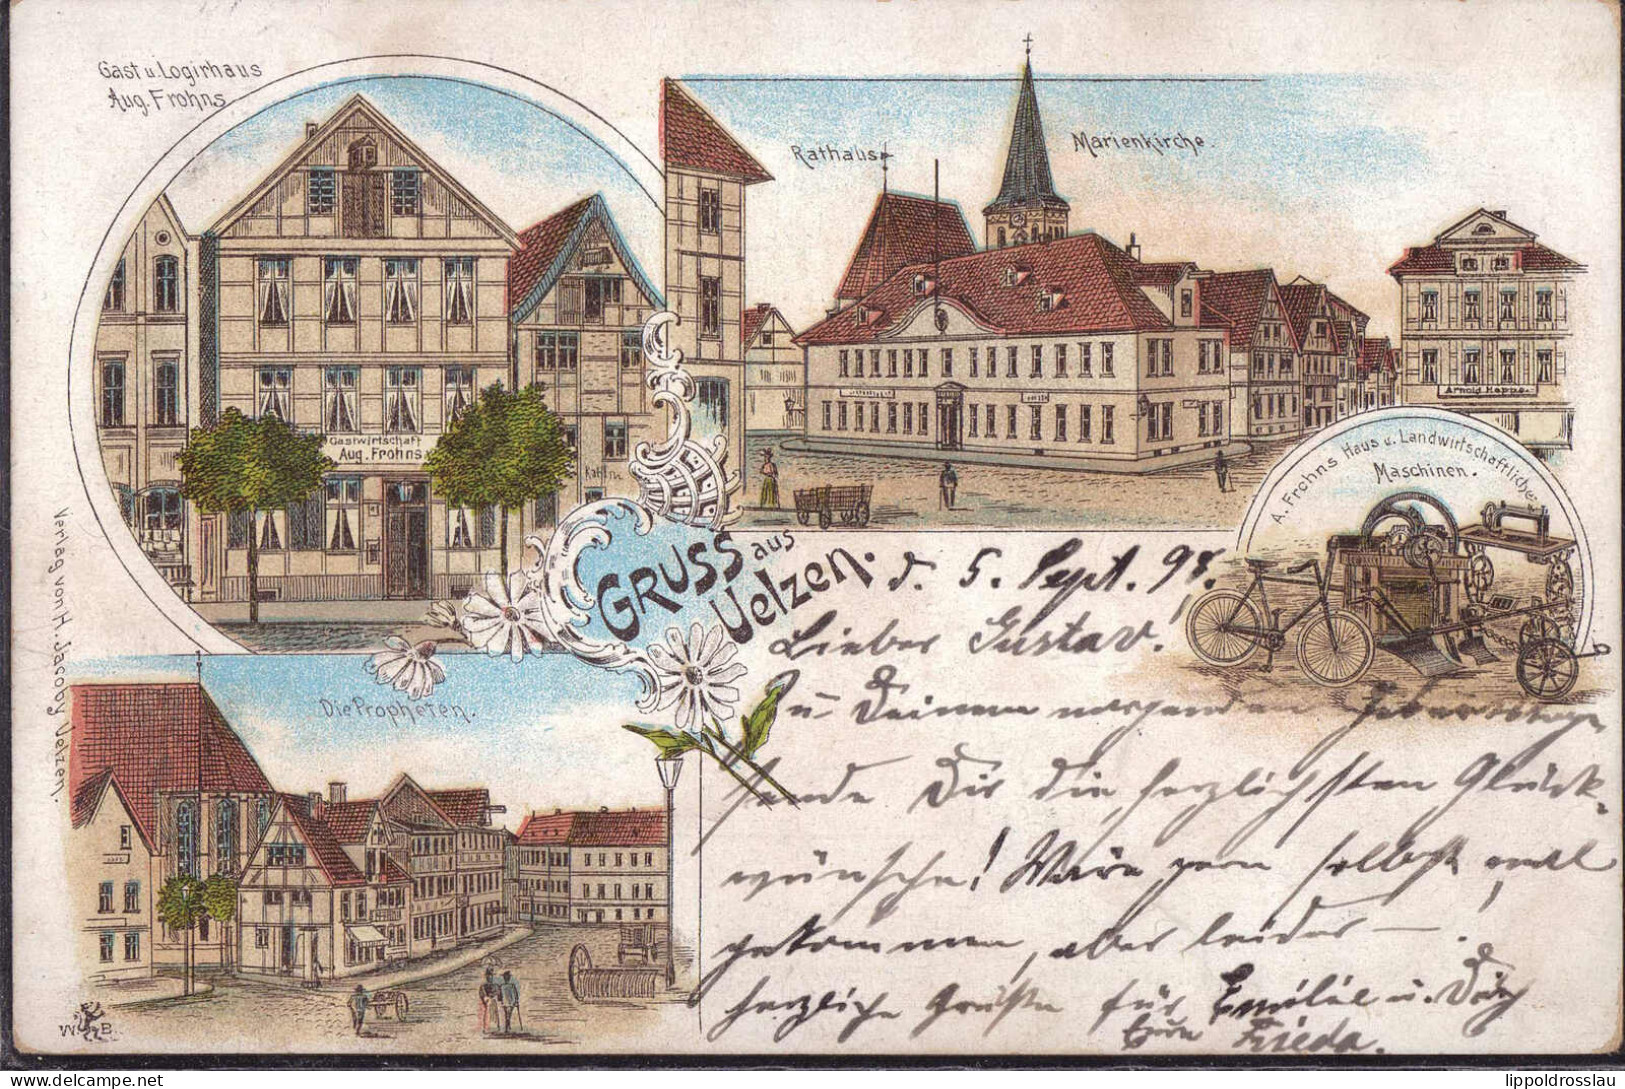 Gast u. Logirhaus
Aug. Frohns
Gastwirtschaft
Aug. Frohns
Rathaus
Marienkirche.
Arnold Kappe.
A. Frohns Haus u. Landwirtschaftliche
Maschinen.
GRUSS aus
Uelzen.
Die Propheten.
Verlag von H. Jacoby Uelzen.
W B
d. 5. Sept. 98.
Lieber Gustav!
Zu Deinem morgenden
sende Dir die herzlichsten Glück-
wünsche! Wäre gern selbst mal
gekommen, aber leider —.
Herzliche Grüße für u. Dich
Eure Frieda.
lippoldrosslau